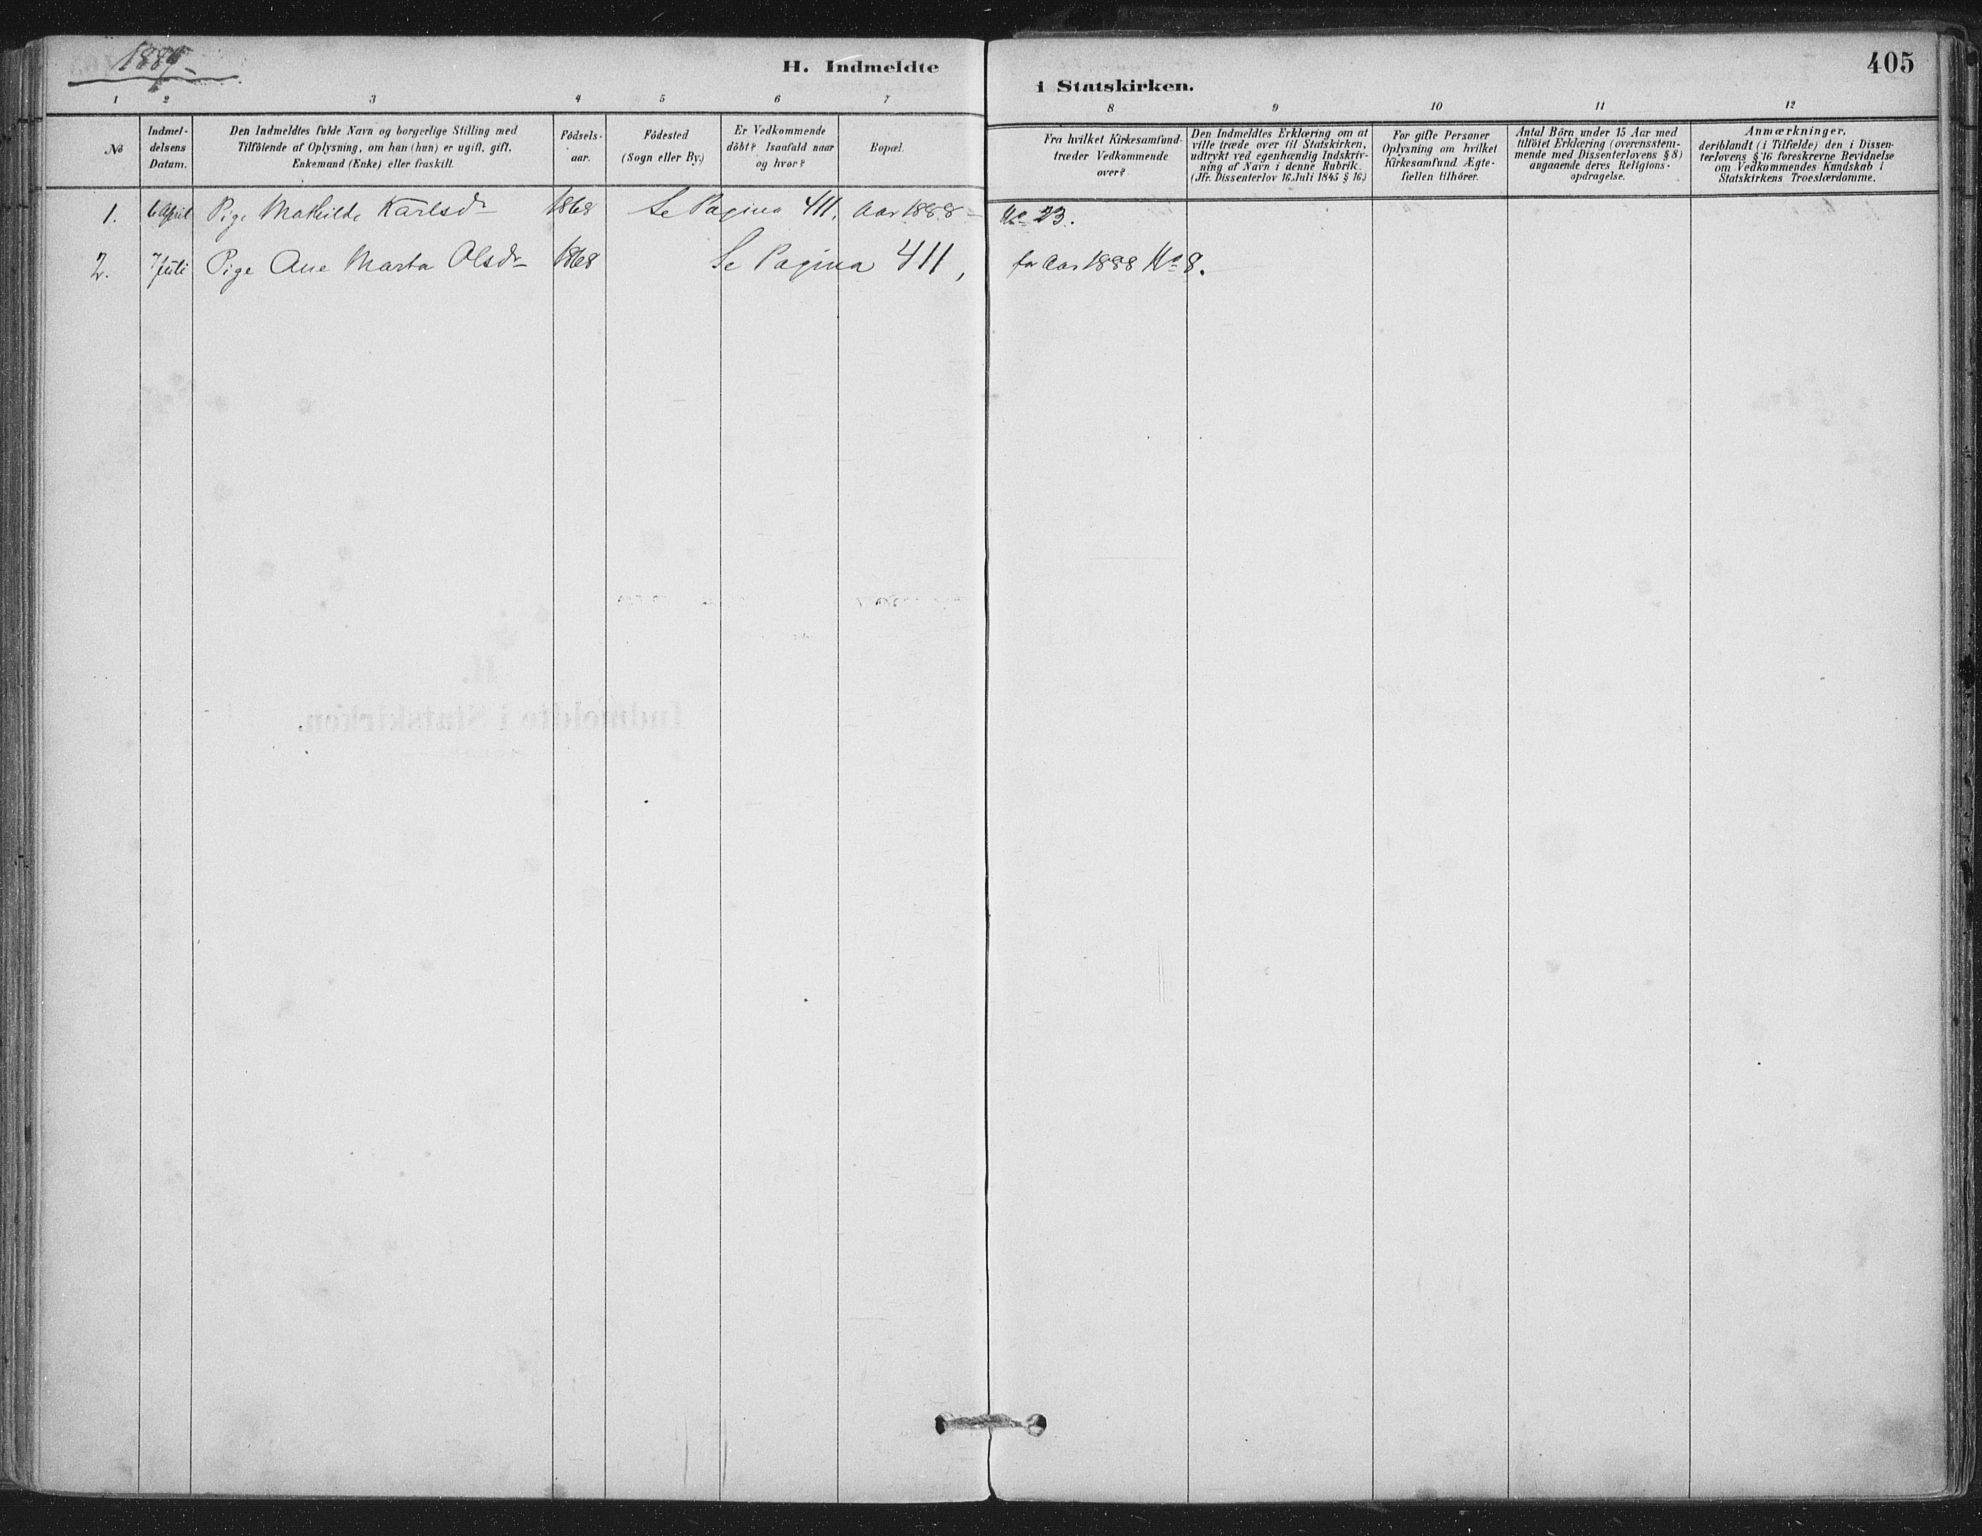 1889
405
H. Indmeldte i Statskirken.
1 2 3 4 5 6 7 8 9 10 11 12
No
Indmel-
delsens
Datum.
Den Indmeldtes fulde Navn og borgerlige Stilling med
Tilföiende af Oplysning, om han (hun) er ugift, gift,
Enkemand (Enke) eller fraskilt.
Födsels-
aar.
Födested
(Sogn eller By.)
Er Vedkommende
döbt? Isaafald naar
og hvor?
Bopæl.
Fra hvilket Kirkesamfund
træder Vedkommende
over?
Den Indmeldtes Erklæring om at
ville træde over til Statskirken,
udtrykt ved egenhændig Indskriv-
ning af Navn i denne Rubrik.
(Jfr. Dissenterlov 16. Juli 1845 § 16)
For gifte Personer
Oplysning om hvilket
Kirkesamfund Ægte-
fællen tilhörer.
Antal Börn under 15 Aar med
tilföiet Erklæring (overensstem-
mende med Dissenterlovens § 8)
angaaende deres Religions-
opdragelse.
Anmærkninger,
deriblandt (i Tilfælde) den i Dissen-
terlovens § 16 foreskrevne Bevidnelse
om Vedkommendes Kundskab i
Statskirkens Troeslærdomme.
1. 6 April Pige Mathilde Karlsdr 1868 Se Pagina 411. Aar 1888 - No 23.
2. 7 Juli Pige Ane Marta Olsdr 1868 Se Pagina 411, for Aar 1888 No 8.